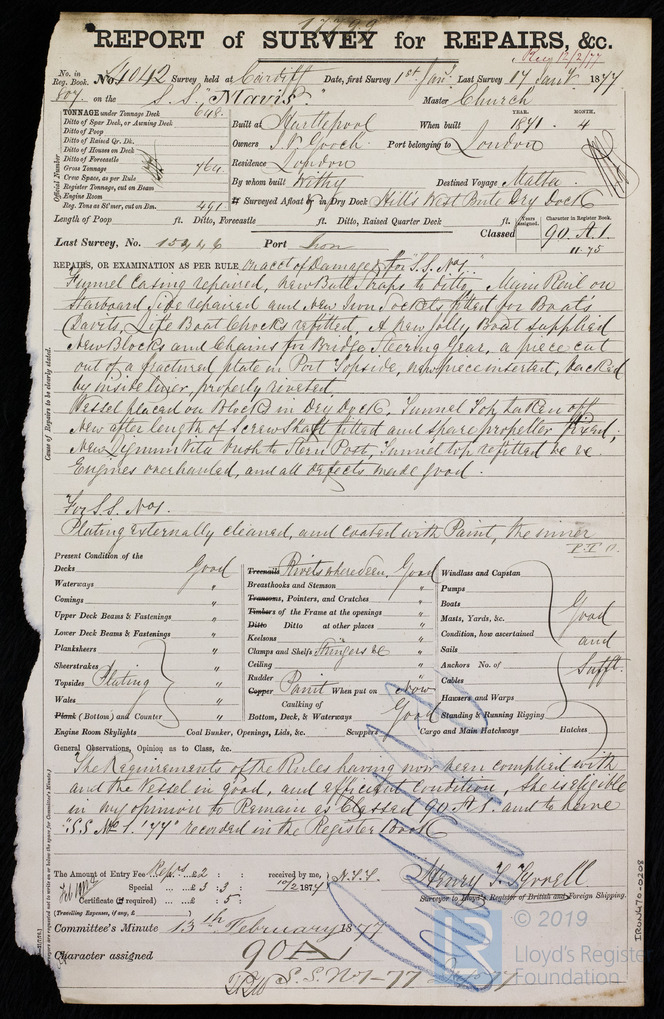 17799
REPORT of SURVEY for REPAIRS, &c.
No. in Reg. Book.
No. 4042 Survey held at Cardiff Date, first Survey 1st Jan. Last Survey 17 Jany 1877
807 on the S.S. "Mavis." Master Church
TONNAGE under Tonnage Deck 648
Ditto of Spar Deck, or Awning Deck
Ditto of Poop
Ditto of Raised Qr. Dk.
Ditto of Houses on Deck
Ditto of Forecastle
Gross Tonnage 764
Crew Space, as per Rule
Register Tonnage, cut on Beam
Engine Room
Reg. Tons as St'mer, cut on Bm. 491
Official Number
Built at Hartlepool When built YEAR. 1871 MONTH. 4
Owners J. V. Gooch Port belonging to London
Residence London
By whom built Withy Destined Voyage Malta
Surveyed Afloat or in Dry Dock Hill's West Bute Dry Dock
Length of Poop ft. Ditto, Forecastle ft. Ditto, Raised Quarter Deck ft.
Classed Years assigned. Character in Register Book.
90 A1.
11-75
Last Survey, No. Port Lon
REPAIRS, OR EXAMINATION AS PER RULE, on acct of Damage & for "S.S. No1."
Funnel Casing repaired, new Butt Straps to ditto, Main Rail on
Starboard Side repaired and New Iron Sockets fitted for Boat's
Davits, Life Boat Chocks refitted, A New Jolly Boat supplied
New Blocks and Chains for Bridge Steering Gear, a piece cut
out of a fractured plate on Port Topside, new piece inserted, backed
by inside liner, properly riveted.
Vessel placed on Blocks in Dry Dock, Tunnel Top taken off
New after length of Screw Shaft fitted and spare propeller fixed;
New Lignum Vita bush to Stern Post, Tunnel top refitted &c &c
Engines overhauled, and all defects made good.
For S.S. No1.
Plating externally cleaned, and coated with Paint, the inner
P.T.O.
Cause of Repairs to be clearly stated.
Present Condition of the
Decks Good
Waterways "
Comings "
Upper Deck Beams & Fastenings "
Lower Deck Beams & Fastenings "
Planksheers "
Sheerstrakes "
Topsides Plating "
Wales "
Plank (Bottom) and Counter "
Engine Room Skylights Coal Bunker, Openings, Lids, &c. Scuppers Cargo and Main Hatchways Hatches
Treenails Rivets where seen, Good
Breasthooks and Stemson "
Transoms, Pointers, and Crutches "
Timbers of the Frame at the openings "
Ditto Ditto at other places "
Keelsons "
Clamps and Shelfs Stringers &c "
Ceiling "
Rudder "
Copper Paint When put on Now
Caulking of
Bottom, Deck, & Waterways Good
Windlass and Capstan
Pumps
Boats
Masts, Yards, &c.
Condition, how ascertained
Sails
Anchors No. of
Cables
Hawsers and Warps
Standing & Running Rigging
Good
and
Sufft.
General Observations, Opinion as to Class, &c.
The Requirements of the Rules having now been complied with
and the Vessel in good, and efficient condition, She is eligible
in my opinion to Remain as Classed 90 A1. and to have
"S.S. No 1. '77" recorded in the Register Book
The Amount of Entry Fee Reprs £2 : : received by me,
Special £3 : 3 : 10/2 1877
Certificate (if required) : 5 :
(Travelling Expenses, if any, £ )
Henry T. Tyrrell
Surveyor to Lloyd's Register of British and Foreign Shipping.
Committee's Minute 13th February 1877
Character assigned 90 A
S.S. No 1-77
IRON470-0208
© 2019
LR
Lloyd's Register
Foundation